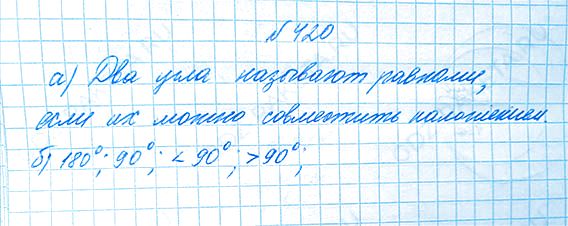 № 420
а) Два угла называют равными,
если их можно совместить наложением.
б) 180°; 90°; < 90°; > 90°;